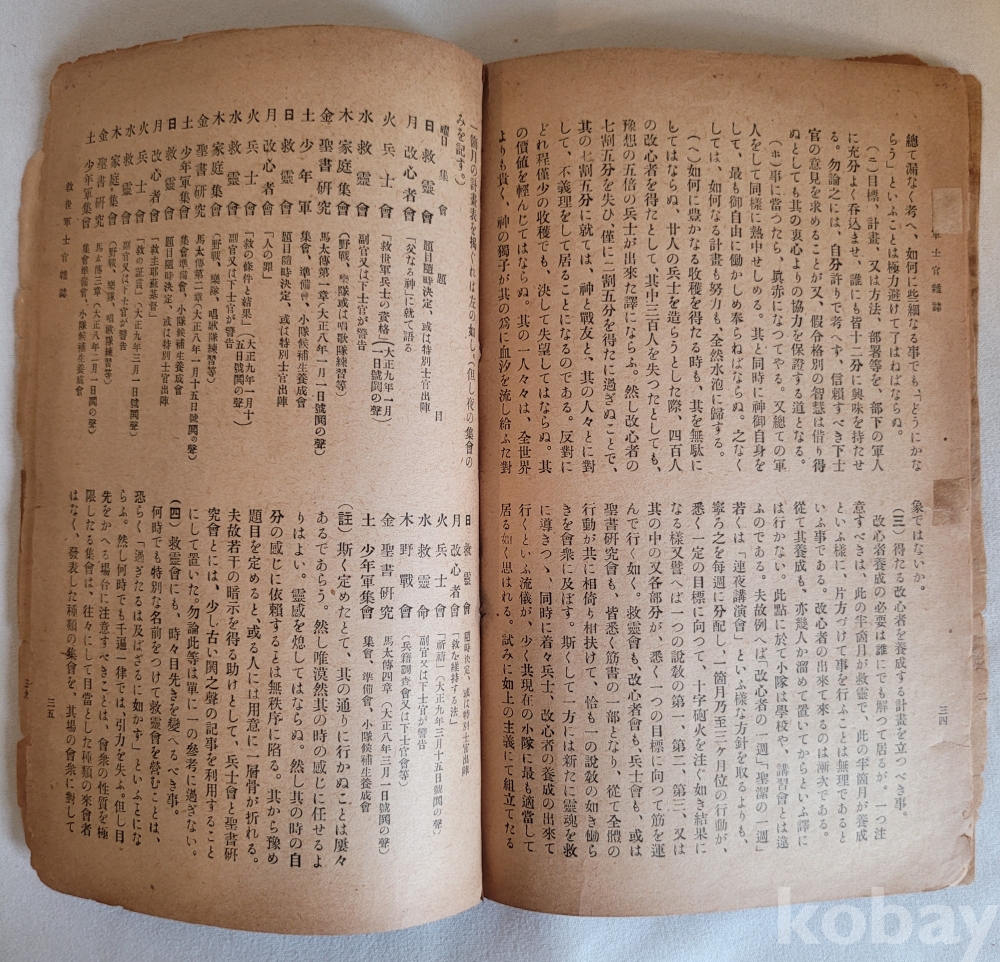 士官雜誌
三四
總て漏なく考へ、如何に些細なる事でも、「どうにかな
らう」といふことは極力避けて了はねばならぬ。
(ニ)目標、計畫、又は方法、部署等を、部下の軍人
に充分よく呑込ませ、誰にも皆十二分に興味を持たせ
る。勿論之には、自分許りで考へず、信頼すべき下士
官の意見を求めることが又、假令格別の智慧は借り得
ぬとしても其の衷心よりの協力を保證する道となる。
(ホ)事に當つたら、眞赤になつてやる。又總ての軍
人をして同樣に熱中せしめる。其と同時に神御自身を
して、最も御自由に働かしめ奉らねばならぬ。之なく
しては、如何なる計畫も努力も、全然水泡に歸する。
(ヘ)如何に豊かなる收穫を得たる時も、其を無駄に
してはならぬ、廿人の兵士を造らうとした際、四百人
の改心者を得たとして、其中三百人を失つたとしても、
豫想の五倍の兵士が出來た譯にならふ。然し改心者の
七割五分を失ひ、僅に二割五分を得たに過ぎぬことで、
其の七割五分に就ては、神と戰友と、其の人々とに對
して、不義理をして居ることになるのである。反對に
どれ程僅少の收穫でも、決して失望してはならぬ。其
の價値を輕んじてはならぬ。其の一人々々は、全世界
よりも貴く、神の獨子が其の爲に血汐を流し給ふた對
象ではないか。
(三)得たる改心者を養成する計畫を立つべき事。
改心者養成の必要は誰にでも解つて居るが。一つ注
意すべきは、此の半箇月が救靈で、此の半箇月が養成
といふ樣に、片方づけて事を行ふことは無理であると
いふ事である。改心者の出來て來るのは漸次である。
從て其養成も、亦幾人か溜めて置いてからといふ譯に
は行かない、此點に於て小隊は學校や、講習會とは違
ふのである。夫故例へば「改心者の一週」「聖潔の一週」
若くは「連夜講演會」、といふ樣な方針を取るよりも、
寧ろ之を毎週に分配し、一箇月乃至三ヶ月位の行動が、
悉く一定の目標に向つて、十字砲火を注ぐ如き結果に
なる樣又譬へば一つの說敎の第一、第二、第三、又は
其の中の又各部分が、悉く一つの目標に向つて筋を運
んで行く如く。救靈會も、改心者會も、兵士會も、或は
聖書研究會も、皆悉く筋書の一部となり、從て全體の
行動が共に相倚も相扶けて、恰も一の說敎の如き働ら
きを會衆に及ぼす。斯くして一方には新たに靈魂を救
に導きつゝ、同時に着々兵士、改心者の養成の出來て
行くといふ流儀が、少く共現在の小隊に最も適當して
居る如く思はれる。試みに如上の主義にて組立てたる
一箇月の計畫表を揭ぐれば左の如し。(但し夜の集會の
みを記す。)
曜日 集會 題目
日 救靈會 題目隨時決定、或は特別士官出陣
月 改心者會 「父なる神」に就て語る
火 兵士會 「救世軍兵士の資格」(大正九年一月一日號鬨の聲)
水 救靈會 副官又は下士官が警告
木 家庭集會 (野戰、樂隊或は唱歌隊練習等)
金 聖書硏究 馬太傳第一章(大正八年一月一日號鬨の聲)
土 少年軍 集會、準備會、小隊候補生養成會
日 救靈會 題目隨時決定、或は特別士官出陣
月 改心者會 「人の罪」
火 兵士會 「救の條件と結果」(大正九年一月十五日號鬨の聲)
水 救靈會 副官又は下士官が警告
木 家庭集會 (野戰、樂隊、唱歌隊練習等)
金 聖書硏究 馬太傳第二章(大正八年一月十五日號鬨の聲)
土 少年軍集會 集會準備會、小隊候補生養成會
日 救靈會 題目隨時決定、或は特別士官出陣
月 改心會 「救主耶蘇基督」
火 兵士會 「救の証言」(大正九年三月一日號鬨の聲)
水 救靈會 副官又は下士官が警告
木 家庭集會 (野戰、唱歌隊練習等)
金 聖書硏究 馬太傳三章(大正八年二月一日號鬨の聲)
土 少年軍集會 集會準備會、小隊候補生養成會
日 救靈會 題隨時決定、或は特別士官出陣
月 改心者會 「救を維持する法」
火 兵士會 「祈禱」(大正九年三月十五日號鬨の聲)
水 救靈命 副官又は下士官が警告
木 野戰會 (兵籍調査會又は下士官會等)
金 聖書硏究 馬太傳四章(大正八年三月一日號鬨の聲)
土 少年軍集會 集會、準備會、小隊候補生養成會
(註) 斯く定めたとて、其の通りに行かぬことは屢々
あるであらう。然し唯漠然其の時の感じに任せるよ
りはよい。靈感を熄してはならぬ。然し其の時の自
分の感じに依賴するとは無秩序に陷る。其から豫め
題目を定めると、或る人には用意に一層骨が折れる。
夫故若干の暗示を得る助けとして、兵士會と聖書硏
究會とには、少し古い鬨之聲の記事を利用すること
にして置いた。勿論此等は單に一の參考に過ぎない。
(四)救靈會にも、時々目先きを變へるべき事。
何時でも特別な名前をつけて救靈會を營むことは、
恐らく「過ぎたるは及ばざるに如かず」といふとにな
らふ。然し何時でも千遍一律では、引力を失ふ。但し目
先をかへる場合に注意すべきことは、會衆の性質を極
限したる集會は、往々にして目當とした種類の來會者
はなく、發表した種類の集會を、其場の會衆に對して
救世軍士官雜誌
三五
kobay